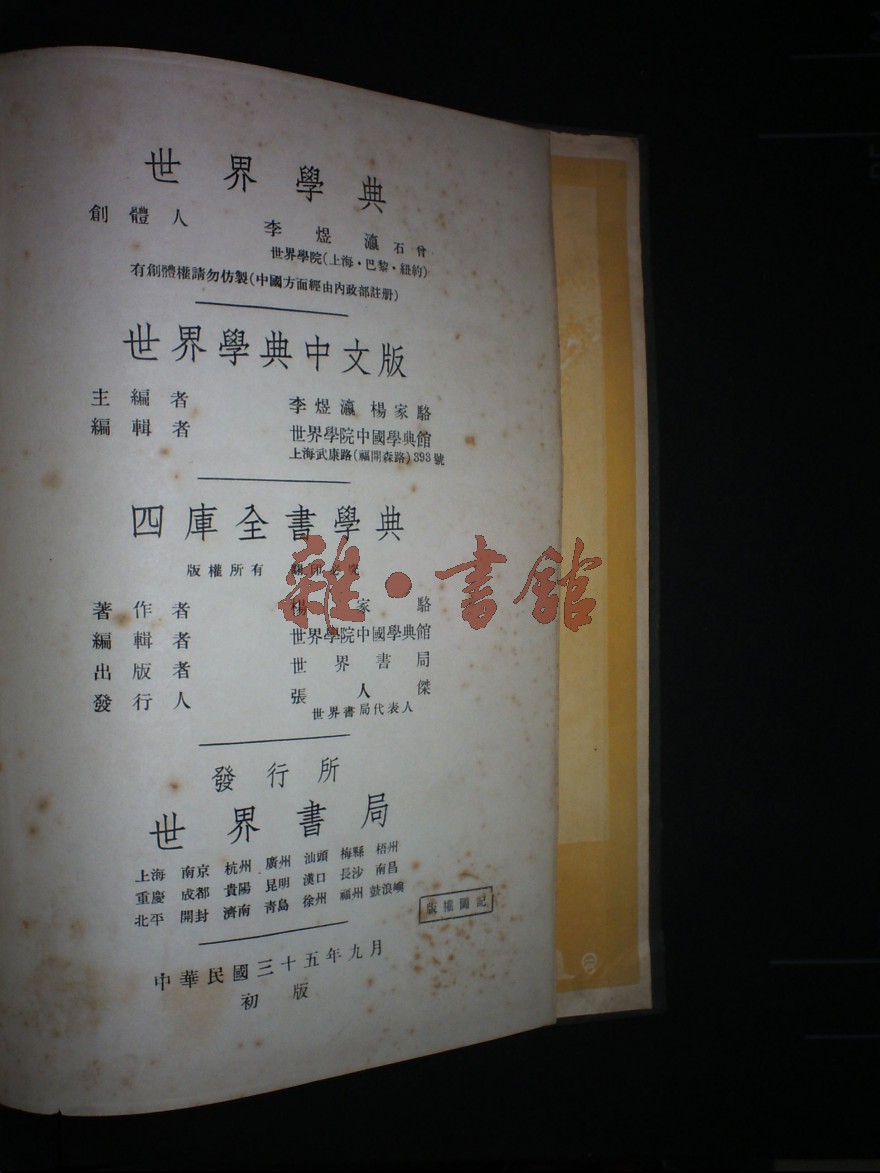 世界學典
創體人 李煜瀛 石曾
世界學院(上海·巴黎·紐約)
有創體權請勿仿製(中國方面經由內政部註册)
世界學典中文版
主編者 李煜瀛 楊家駱
編輯者 世界學院中國學典館
上海武康路(福開森路)393號
四庫全書學典
版權所有 翻印必究
雜·書館
著作者 楊家駱
編輯者 世界學院中國學典館
出版者 世界書局
發行人 張人傑
世界書局代表人
發行所
世界書局
上海 南京 杭州 廣州 汕頭 梅縣 梧州
重慶 成都 貴陽 昆明 漢口 長沙 南昌
北平 開封 濟南 青島 徐州 福州 鼓浪嶼
版權圖記
中華民國三十五年九月
初版